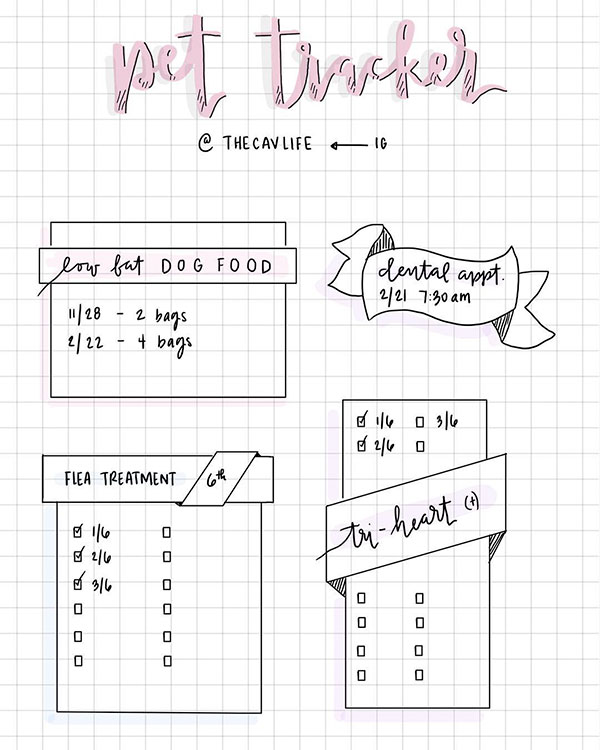 pet tracker
@ THECAVLIFE ← IG
low fat DOG FOOD
11/28 - 2 bags
2/22 - 4 bags
dental appt.
2/21 7:30am
FLEA TREATMENT 6th
☑ 1/6 ☐
☑ 2/6 ☐
☑ 3/6 ☐
☑ 1/6 ☐ 3/6
☑ 2/6 ☐
tri-heart (+)